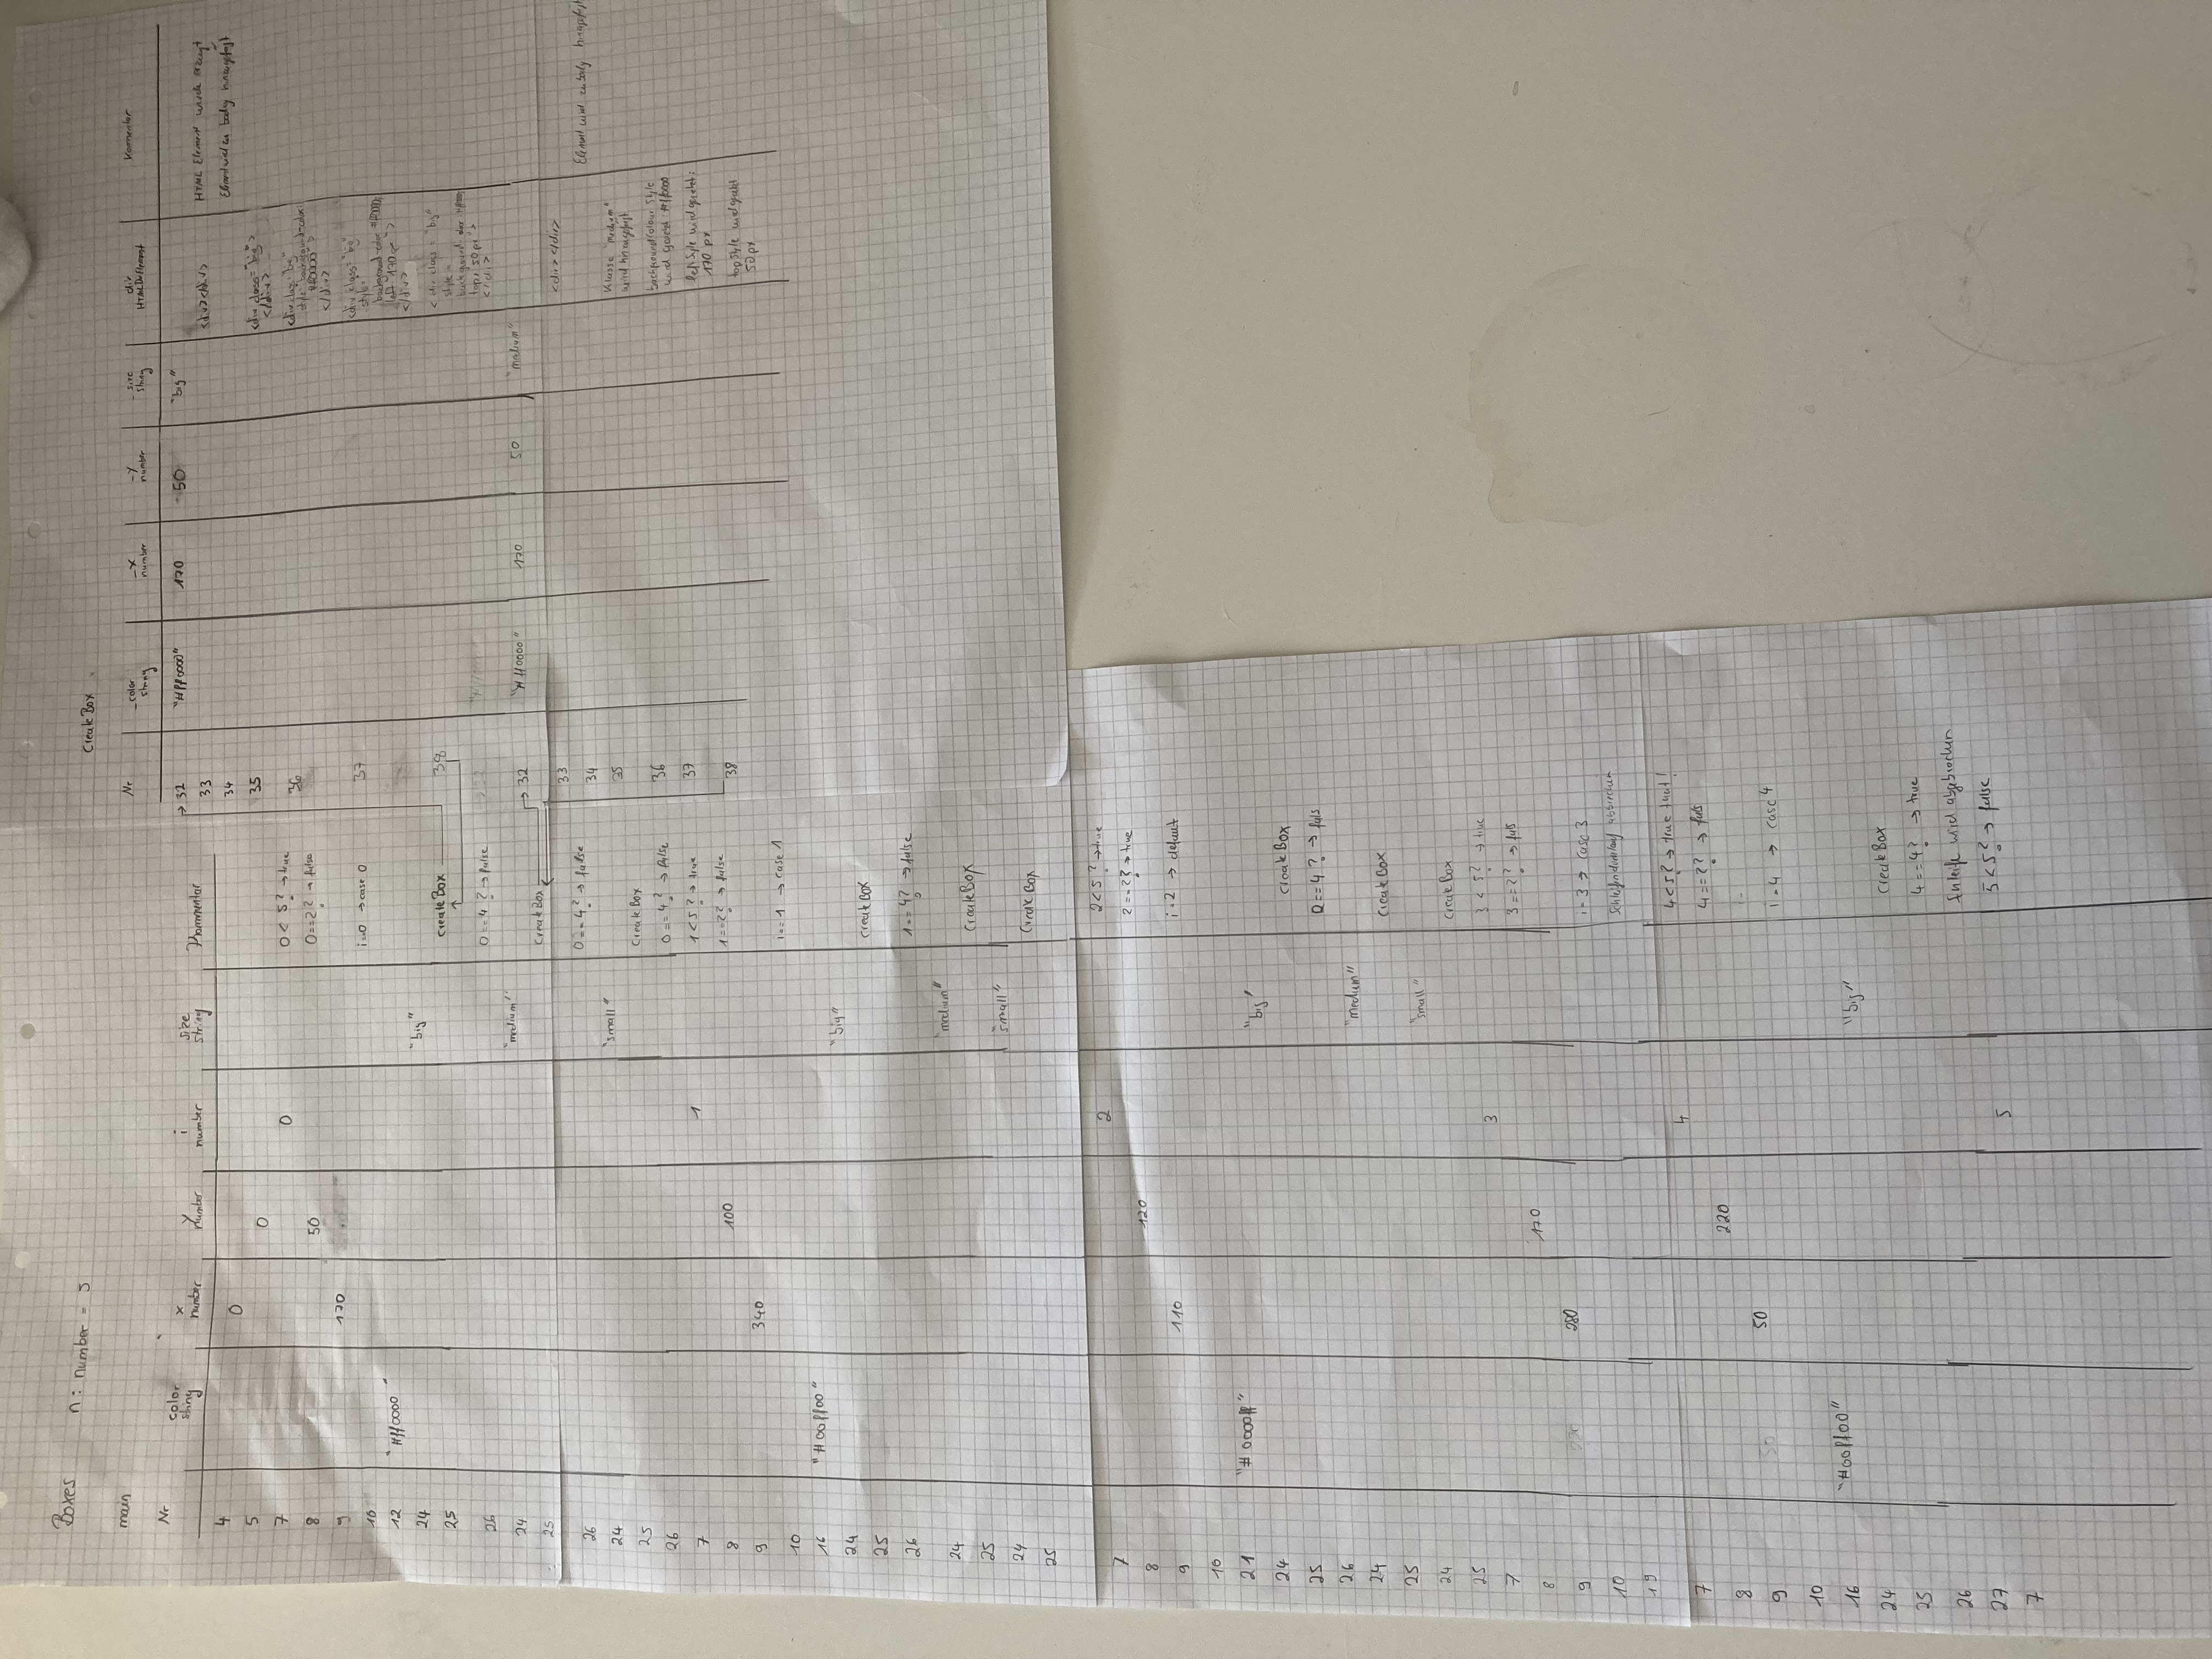 Boxes n: number = 5
main
Nr color string x number y number i number size string Kommentar
4 0
5 0
7 0 0 < 5? → true
8 50 0==2? → false
9 170
10 i=0 → case 0
12 "#ff0000"
24 "big"
25 createBox
26 0==4? → false
24 "medium"
25 createBox
26 0==4? → false
24 "small"
25 createBox
26 0==4? → false
7 1 1<5? → true
8 100 1==2? → false
9 340
10 i==1 → case 1
16 "#00ff00"
24 "big"
25 createBox
26 1==4? → false
24 "medium"
25 createBox
24 "small"
25 createBox
7 2 2<5? → true
8 120 2==2? → true
9 110 i=2 → default
10
21 "#0000ff"
24 "big"
25 createBox
26 2==4? → fals
24 "medium"
25 createBox
24 "small"
25 createBox
7 3 3 < 5? → true
8 170 3==2? → fals
9 280
10 i=3 → case 3
19 Schleifendurchlauf abbrechen
7 4 4<5? → true that!
8 220 4==2? → fals
9 50
10 i=4 → case 4
16 "#00ff00"
24 "big"
25 createBox
26 4==4? → true
27 wird abgebrochen
7 5 5<5? → false
createBox
Nr _color string _x number _y number _size string div HTMLDivElement Kommentar
32 "#ff0000" 170 50 "big"
33 <div></div> HTML Element wurde erzeugt
34 Element wird zu body hinzugefügt
35 <div class="big">
</div>
36 <div class="big"
style="background-color:
#ff0000">
</div>
37 <div class="big"
style=
background-color #ff0000;
left: 170px">
</div>
38 <div class="big"
style=
background-color: #ff0000;
top: 50px">
</div>
32 "#ff0000" 170 50 "medium"
33 <div></div>
34 Element wird zu body hinzugefügt
35 Klasse "medium"
wird hinzugefügt
36 backgroundColour Style
wird gesetzt #ff0000
37 left Style wird gesetzt:
170 px
38 top Style wird gesetzt
50px